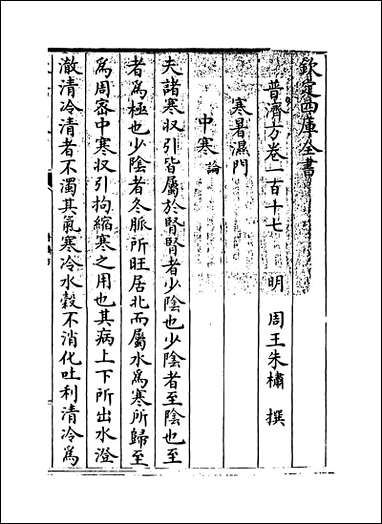 欽定四庫全書
普濟方卷一百十七　明　周王朱橚　撰
寒暑濕門
中寒論
夫諸寒収引皆屬於腎腎者少陰也少陰者至陰也至
者為極也少陰者冬脈所旺居北而屬水為寒所歸至
為周密中寒収引拘縮寒之用也其病上下所出水澄
澈清冷清者不濁其氣寒冷水穀不消化吐利清冷為